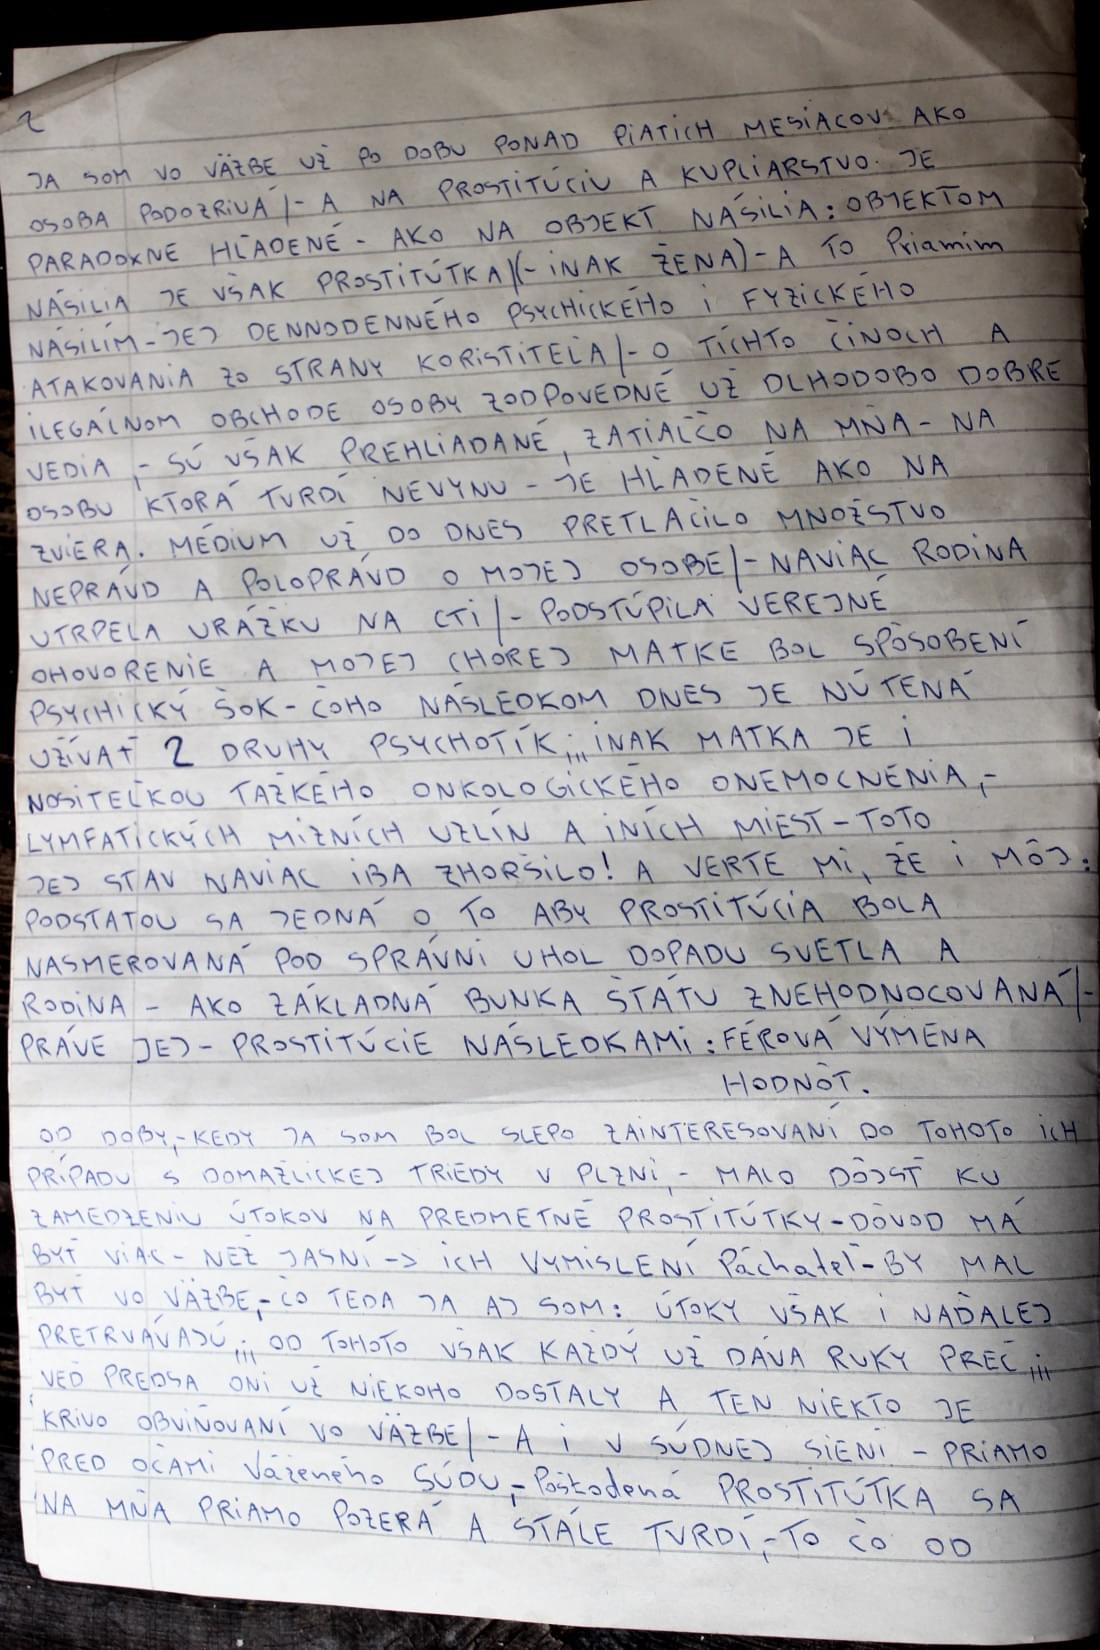 2
JA SOM VO VÄZBE UŽ PO DOBU PONAD PIATICH MESIACOV AKO
OSOBA PODOZRIVÁ/- A NA PROSTITÚCIU A KUPLIARSTVO JE
PARADOXNE HĽADENÉ - AKO NA OBJEKT NÁSILIA: OBJEKTOM
NÁSILIA JE VŠAK PROSTITÚTKA/(-INAK ŽENA)-A TO Priamim
NÁSILÍM-JEJ DENNODENNÉHO PSYCHICKÉHO i FYZICKÉHO
ATAKOVANIA ZO STRANY KORISTITEĽA/-O TÍCHTO ČINOCH A
ILEGÁLNOM OBCHODE OSOBY ZODPOVEDNÉ UŽ DLHODOBO DOBRE
VEDIA,- SÚ VŠAK PREHLIADANÉ, ZATIAĽČO NA MŇA - NA
OSOBU KTORÁ TVRDÍ NEVYNU - JE HĽADENÉ AKO NA
ZVIERA. MÉDIUM UŽ DO DNES PRETLAČILO MNOŽSTVO
NEPRÁVD A POLOPRÁVD O MOJEJ OSOBE/-NAVIAC RODINA
UTRPELA URÁŽKU NA CTI/- PODSTÚPILA VEREJNÉ
OHOVORENIE A MOJEJ CHOREJ MATKE BOL SPÔSOBENÍ
PSYCHICKÝ ŠOK-ČOHO NÁSLEDKOM DNES JE NÚTENÁ
UŽÍVAŤ 2 DRUHY PSYCHOTÍK;,, INAK MATKA JE i
NOSITEĽKOU ŤAŽKÉHO ONKOLOGICKÉHO ONEMOCNENIA,-
LYMFATICKÝCH MIZNÍCH UZLÍN A INÍCH MIEST-TOTO
JEJ STAV NAVIAC IBA ZHORŠILO! A VERTE MI, ŽE i MÔJ:
PODSTATOU SA JEDNÁ O TO ABY PROSTITÚCIA BOLA
NASMEROVANÁ POD SPRÁVNI UHOL DOPADU SVETLA A
RODINA - AKO ZÁKLADNÁ BUNKA ŠTÁTU ZNEHODNOCOVANÁ/-
PRÁVE JEJ-PROSTITÚCIE NÁSLEDKAMI: FÉROVÁ VÝMENA
HODNÔT.
OD DOBY,-KEDY JA SOM BOL SLEPO ZAINTERESOVANÍ DO TOHOTO ICH
PRÍPADU S DOMAŽLICKEJ TRIEDY V PLZNI,- MALO DÔJSŤ KU
ZAMEDZENIU ÚTOKOV NA PREDMETNÉ PROSTITÚTKY-DÔVOD MÁ
BYŤ VIAC-NEŽ JASNÍ-> ICH VYMISLENÍ Páchateľ-BY MAL
BYŤ VO VÄZBE,-ČO TEDA JA AJ SOM: ÚTOKY VŠAK i NAĎALEJ
PRETRVÁVAJÚ;,, OD TOHOTO VŠAK KAŽDÝ UŽ DÁVA RUKY PREČ;,,
VEĎ PREDSA ONI UŽ NIEKOHO DOSTALY A TEN NIEKTO JE
KRIVO OBVIŇOVANÍ VO VÄZBE/-A i V SÚDNEJ SIENI - PRIAMO
PRED OČAMI Váženého SÚDU,-Poškodená PROSTITÚTKA SA
NA MŇA PRIAMO POZERÁ A STÁLE TVRDÍ,-TO ČO OD